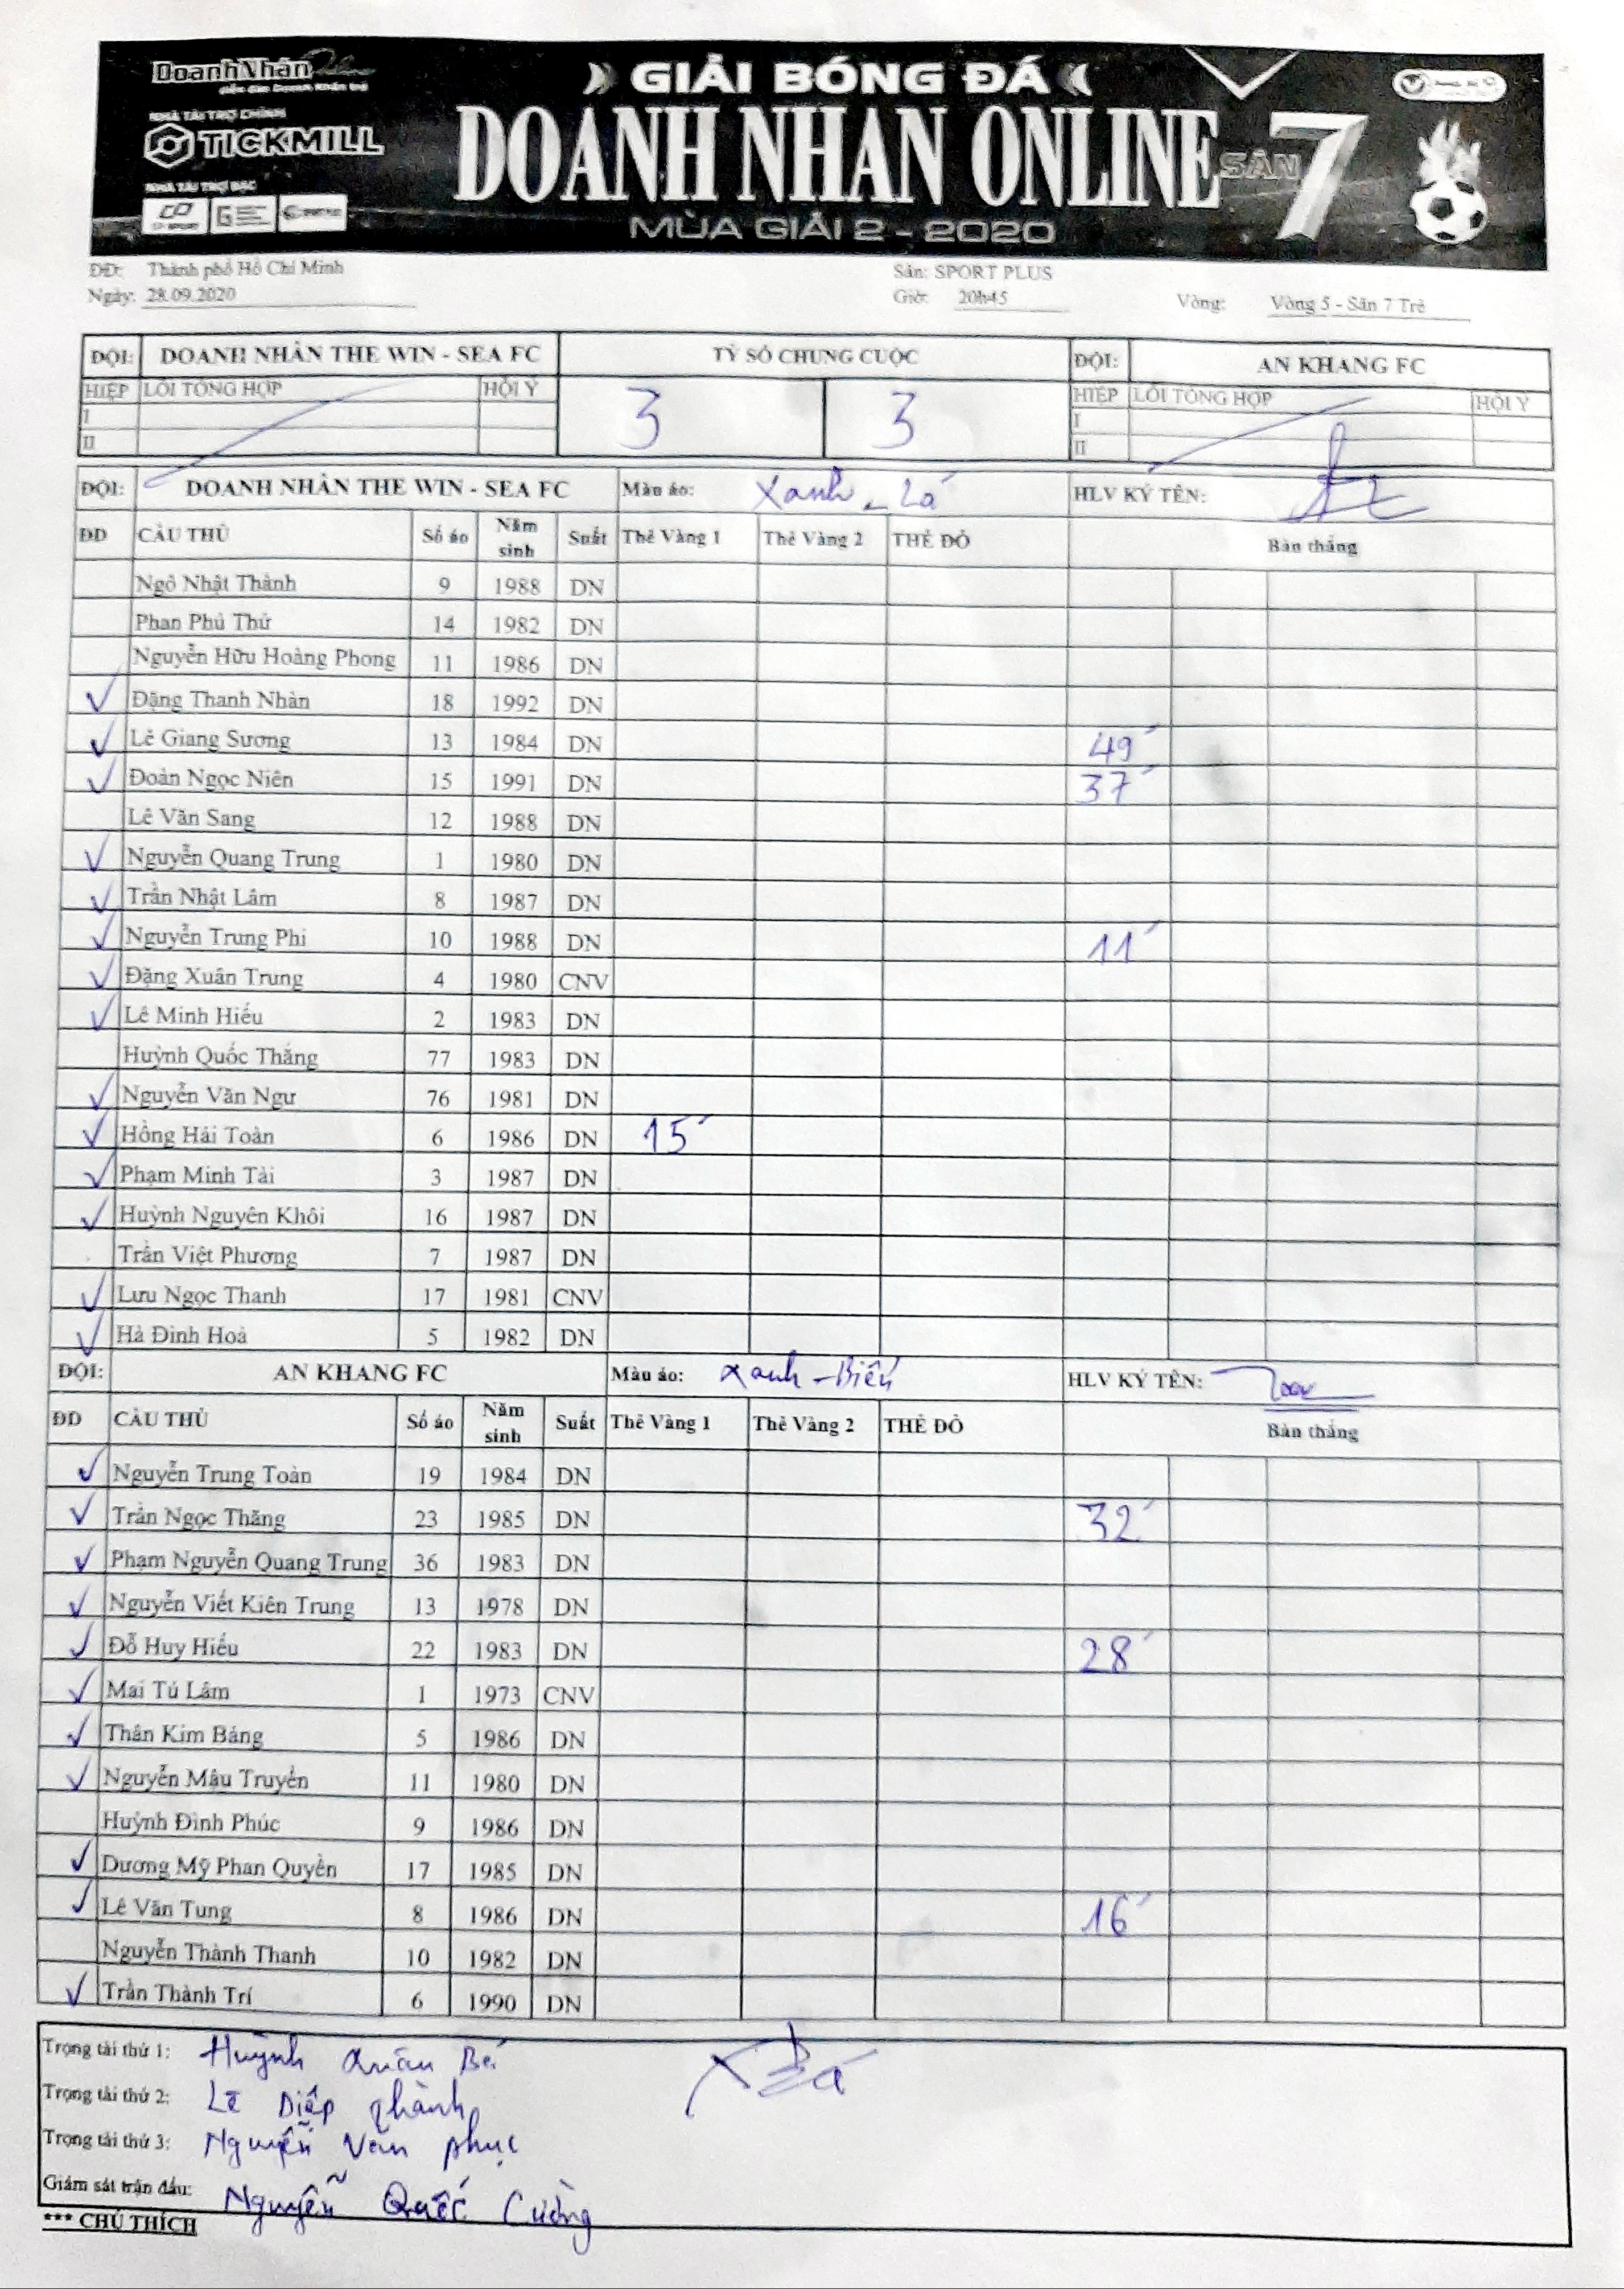 DoanhNhân Online
diễn đàn Doanh Nhân trẻ
NHÀ TÀI TRỢ CHÍNH
TICKMILL
NHÀ TÀI TRỢ BẠC
GIẢI BÓNG ĐÁ
DOANH NHÂN ONLINE
SÂN 7
MÙA GIẢI 2 - 2020
ĐĐ: Thành phố Hồ Chí Minh Sân: SPORT PLUS
Ngày: 28.09.2020 Giờ: 20h45 Vòng: Vòng 5 - Sân 7 Trẻ
ĐỘI: DOANH NHÂN THE WIN - SEA FC TỶ SỐ CHUNG CUỘC ĐỘI: AN KHANG FC
HIỆP LỖI TỔNG HỢP HỘI Ý 3 3 HIỆP LỖI TỔNG HỢP HỘI Ý
I I
II II
ĐỘI: DOANH NHÂN THE WIN - SEA FC Màu áo: Xanh - Lá HLV KÝ TÊN:
ĐD CẦU THỦ Số áo Năm sinh Suất Thẻ Vàng 1 Thẻ Vàng 2 THẺ ĐỎ Bàn thắng
Ngô Nhật Thành 9 1988 DN
Phan Phú Thứ 14 1982 DN
Nguyễn Hữu Hoàng Phong 11 1986 DN
✓ Đặng Thanh Nhàn 18 1992 DN
✓ Lê Giang Sương 13 1984 DN 49'
✓ Đoàn Ngọc Niên 15 1991 DN 37'
Lê Văn Sang 12 1988 DN
✓ Nguyễn Quang Trung 1 1980 DN
✓ Trần Nhật Lâm 8 1987 DN
✓ Nguyễn Trung Phi 10 1988 DN 11'
✓ Đặng Xuân Trung 4 1980 CNV
✓ Lê Minh Hiếu 2 1983 DN
Huỳnh Quốc Thắng 77 1983 DN
✓ Nguyễn Văn Ngư 76 1981 DN
✓ Hồng Hải Toàn 6 1986 DN 15'
✓ Phạm Minh Tài 3 1987 DN
✓ Huỳnh Nguyên Khôi 16 1987 DN
Trần Việt Phương 7 1987 DN
✓ Lưu Ngọc Thanh 17 1981 CNV
✓ Hà Đình Hoà 5 1982 DN
ĐỘI: AN KHANG FC Màu áo: Xanh - Biển HLV KÝ TÊN:
ĐD CẦU THỦ Số áo Năm sinh Suất Thẻ Vàng 1 Thẻ Vàng 2 THẺ ĐỎ Bàn thắng
✓ Nguyễn Trung Toàn 19 1984 DN
✓ Trần Ngọc Thăng 23 1985 DN 32'
✓ Phạm Nguyễn Quang Trung 36 1983 DN
✓ Nguyễn Viết Kiên Trung 13 1978 DN
✓ Đỗ Huy Hiếu 22 1983 DN 28'
✓ Mai Tú Lâm 1 1973 CNV
✓ Thân Kim Bảng 5 1986 DN
✓ Nguyễn Mậu Truyền 11 1980 DN
Huỳnh Đình Phúc 9 1986 DN
✓ Dương Mỹ Phan Quyền 17 1985 DN
✓ Lê Văn Tung 8 1986 DN 16'
Nguyễn Thành Thanh 10 1982 DN
✓ Trần Thành Trí 6 1990 DN
Trọng tài thứ 1: Huỳnh Quân Bá
Trọng tài thứ 2: Lê Diệp Thành
Trọng tài thứ 3: Nguyễn Văn Phục
Giám sát trận đấu: Nguyễn Quốc Cường
*** CHÚ THÍCH